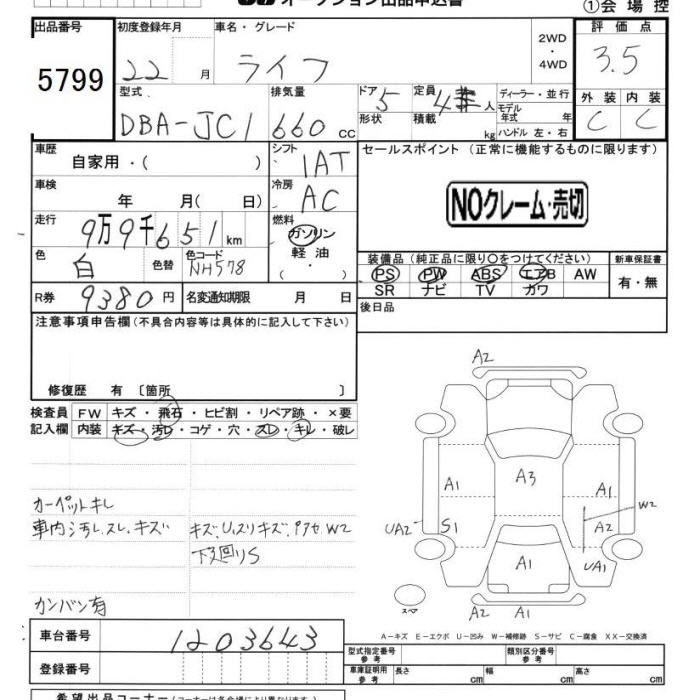 オークション出品申込書
①会場控
出品番号
5799
初度登録年月
22 月
車名・グレード
ライフ
2WD
・
4WD
評価点
3.5
型式
DBA-JC1
排気量
660 cc
ドア 5
形状
定員 4 人
積載 kg
ディーラー・並行
モデル年式 年
ハンドル 左・右
外装 内装
C C
車歴
自家用・( )
シフト
IAT
セールスポイント(正常に機能するものに限ります)
NOクレーム・売切
車検
年 月( 日)
冷房
AC
走行
9万9千651km
燃料
ガソリン
軽油
・
( )
色
白
色替
色コード
NH578
装備品(純正品に限り○をつけてください)
PS PW ABS エアB AW
SR ナビ TV カワ
新車保証書
有・無
R券
9380円
名変通知期限 月 日
後日品
注意事項申告欄(不具合内容等は具体的に記入して下さい)
修復歴 有 〔箇所 〕
検査員記入欄
FW キズ・飛石・ヒビ割・リペア跡・×要
内装 キズ・汚レ・コゲ・穴・スレ・キレ・破レ
カーペットキレ
車内汚レ.スレ.キズ
キズ.Uスリキズ.アクセ.W2
下廻りS
カンバン有
A2
A1
A3
A1
W2
UA2
S1
A2
A1
UA1
スペア
A2 A1
A-キズ E-エクボ U-凹み W-補修跡 S-サビ C-腐食 XX-交換済
車台番号
1203643
登録番号
型式指定番号
参考
類別区分番号
参考
車庫証明用
参考
長さ cm
幅 cm
高さ cm
希望出品コーナー(コーナーは各会場により異なります。)